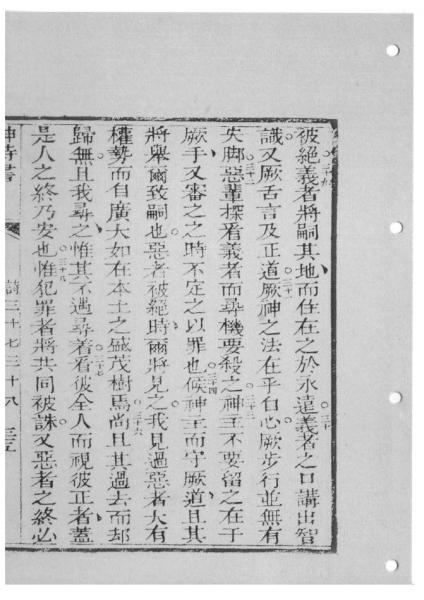 被絕二十九義者將嗣其地而住在之於永遠三十義者之口講出智
識又厥舌言及正道三十一厥神之法在乎自心厥步行並無有
失脚三十二惡輩探看義者而尋機要殺之三十三神主不要留之在于
厥手又審之之時不定之以罪也三十四候神主而守厥道且其
將舉爾致嗣也惡者被絕時爾將見之三十五我見過惡者大有
權勢而自廣大如在本土之盛茂樹焉三十六尚且其過去而却
歸無且我尋之惟其不遇尋著三十七看彼全人而視彼正者蓋
是人之終乃安也三十八惟犯罪者將共同被誅又惡者之終必
神詩書 詩三十七三十八 三五